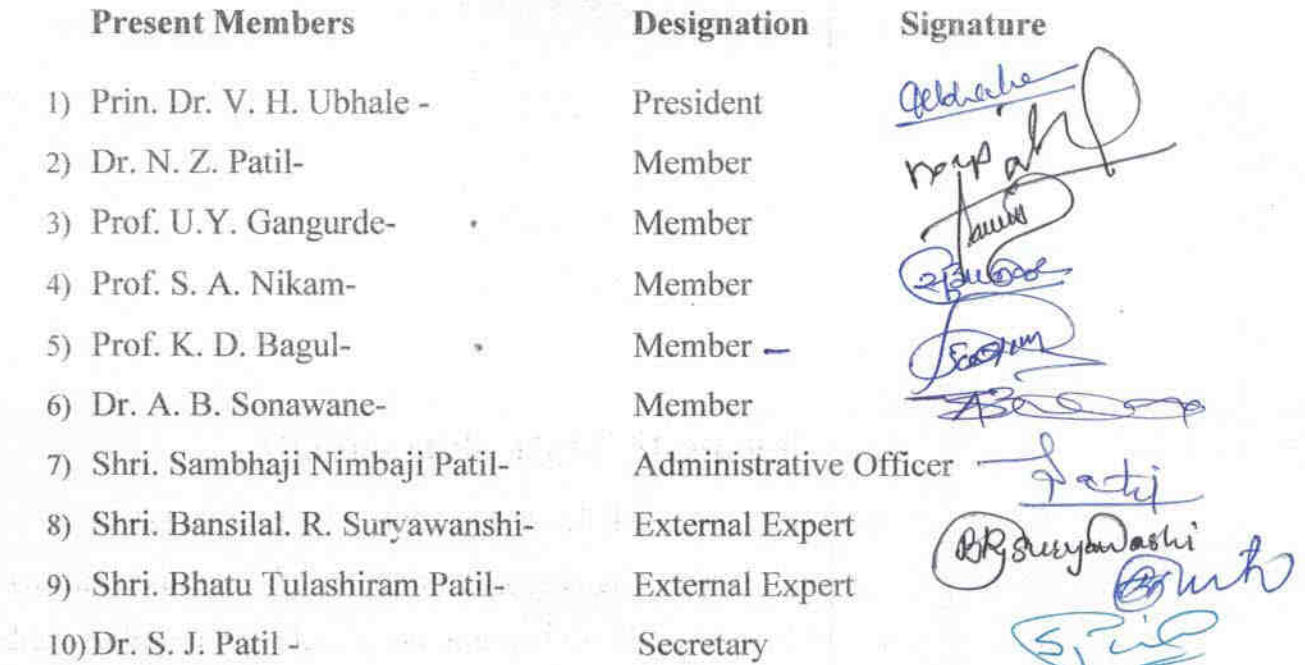 Present Members Designation Signature
1) Prin. Dr. V. H. Ubhale - President
2) Dr. N. Z. Patil- Member
3) Prof. U.Y. Gangurde- Member
4) Prof. S. A. Nikam- Member
5) Prof. K. D. Bagul- Member –
6) Dr. A. B. Sonawane- Member
7) Shri. Sambhaji Nimbaji Patil- Administrative Officer
8) Shri. Bansilal. R. Suryawanshi- External Expert
9) Shri. Bhatu Tulashiram Patil- External Expert
10) Dr. S. J. Patil - Secretary